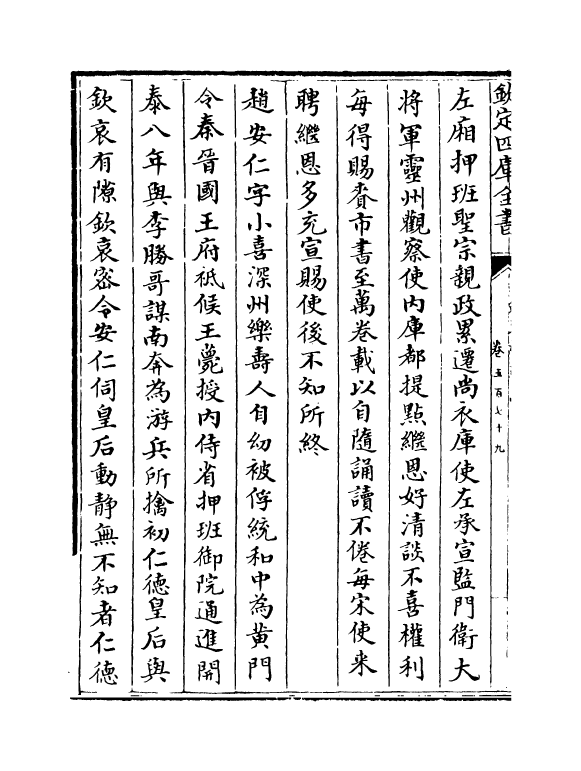 欽定四庫全書
卷五百七十九
左廂押班聖宗親政累遷尚衣庫使左承宣監門衛大
將軍靈州觀察使内庫都提點繼恩好清談不喜權利
每得賜賚市書至萬卷載以自隨誦讀不倦每宋使來
聘繼恩多充宣賜使後不知所終
趙安仁字小喜深州樂壽人自幼被俘統和中為黄門
令秦晉國王府祗候王薨授内侍省押班御院通進開
泰八年與李勝哥謀南奔為游兵所擒初仁德皇后與
欽哀有隙欽哀宻令安仁伺皇后動靜無不知者仁德